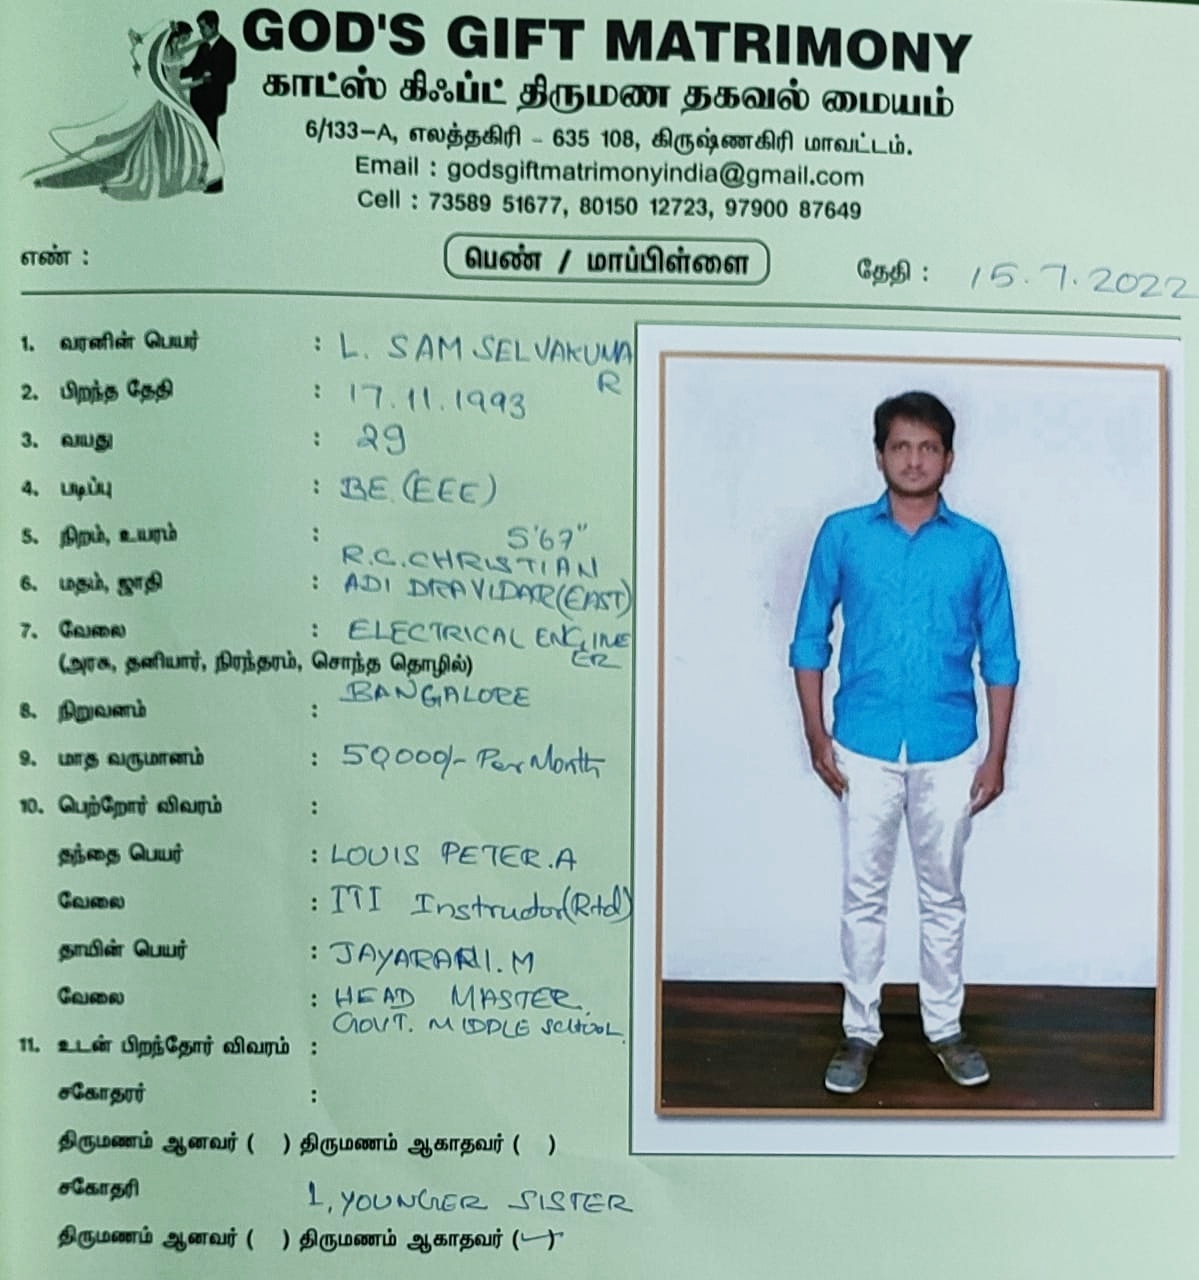 GOD'S GIFT MATRIMONY
காட்ஸ் கிஃப்ட் திருமண தகவல் மையம்
6/133-A, எலத்தகிரி - 635 108, கிருஷ்ணகிரி மாவட்டம்.
Email : godsgiftmatrimonyindia@gmail.com
Cell : 73589 51677, 80150 12723, 97900 87649
எண் :
பெண் / மாப்பிள்ளை
தேதி : 15.7.2022
1. வரனின் பெயர் : L. SAM SELVAKUMA
R
2. பிறந்த தேதி : 17.11.1993
3. வயது : 29
4. படிப்பு : BE (EEE)
5. நிறம், உயரம் : 5'67"
R.C.CHRISTIAN
6. மதம், ஜாதி : ADI DRAVIDAR(EAST)
7. வேலை : ELECTRICAL ENGINE
ER
(அரசு, தனியார், நிரந்தரம், சொந்த தொழில்)
BANGALORE
8. நிறுவனம் :
9. மாத வருமானம் : 50,000/- Per Month
10. பெற்றோர் விவரம் :
தந்தை பெயர் : LOUIS PETER.A
வேலை : ITI Instructor(Rtd)
தாயின் பெயர் : JAYARANI.M
வேலை : HEAD MASTER.
GOVT. MIDDLE SCHOOL.
11. உடன் பிறந்தோர் விவரம் :
சகோதரர் :
திருமணம் ஆனவர் ( ) திருமணம் ஆகாதவர் ( )
சகோதரி 1, YOUNGER SISTER
திருமணம் ஆனவர் ( ) திருமணம் ஆகாதவர் (✓)